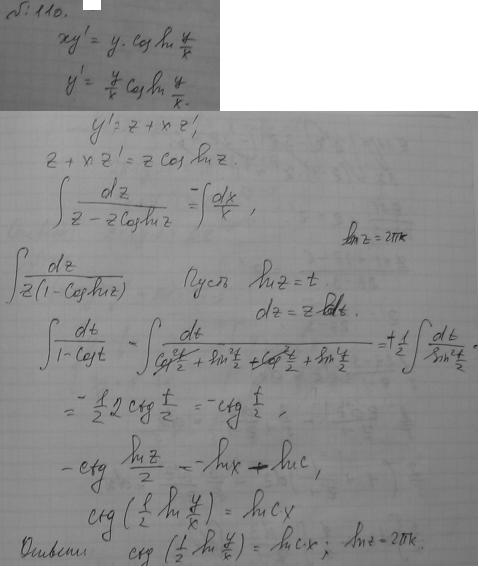 № 110.
xy' = y · cos ln y/x
y' = y/x cos ln y/x.
y' = z + x z',
z + x z' = z cos ln z.
∫ dz / (z − z cos ln z) = −∫ dx/x ,
ln z = 2πk
∫ dz / (z(1 − cos ln z)) Пусть ln z = t
dz = z dt.
∫ dt / (1 − cos t) − ∫ dt / (cos² t/2 + sin² t/2 + cos² t/2 + sin² t/2) = + 1/2 ∫ dt / sin² t/2 .
= − 1/2 2 ctg t/2 = − ctg t/2 ,
− ctg ln z / 2 = − ln x + ln c ,
ctg (1/2 ln y/x) = ln c x
Ответ: ctg (1/2 ln y/x) = ln c · x ; ln z = 2πk.